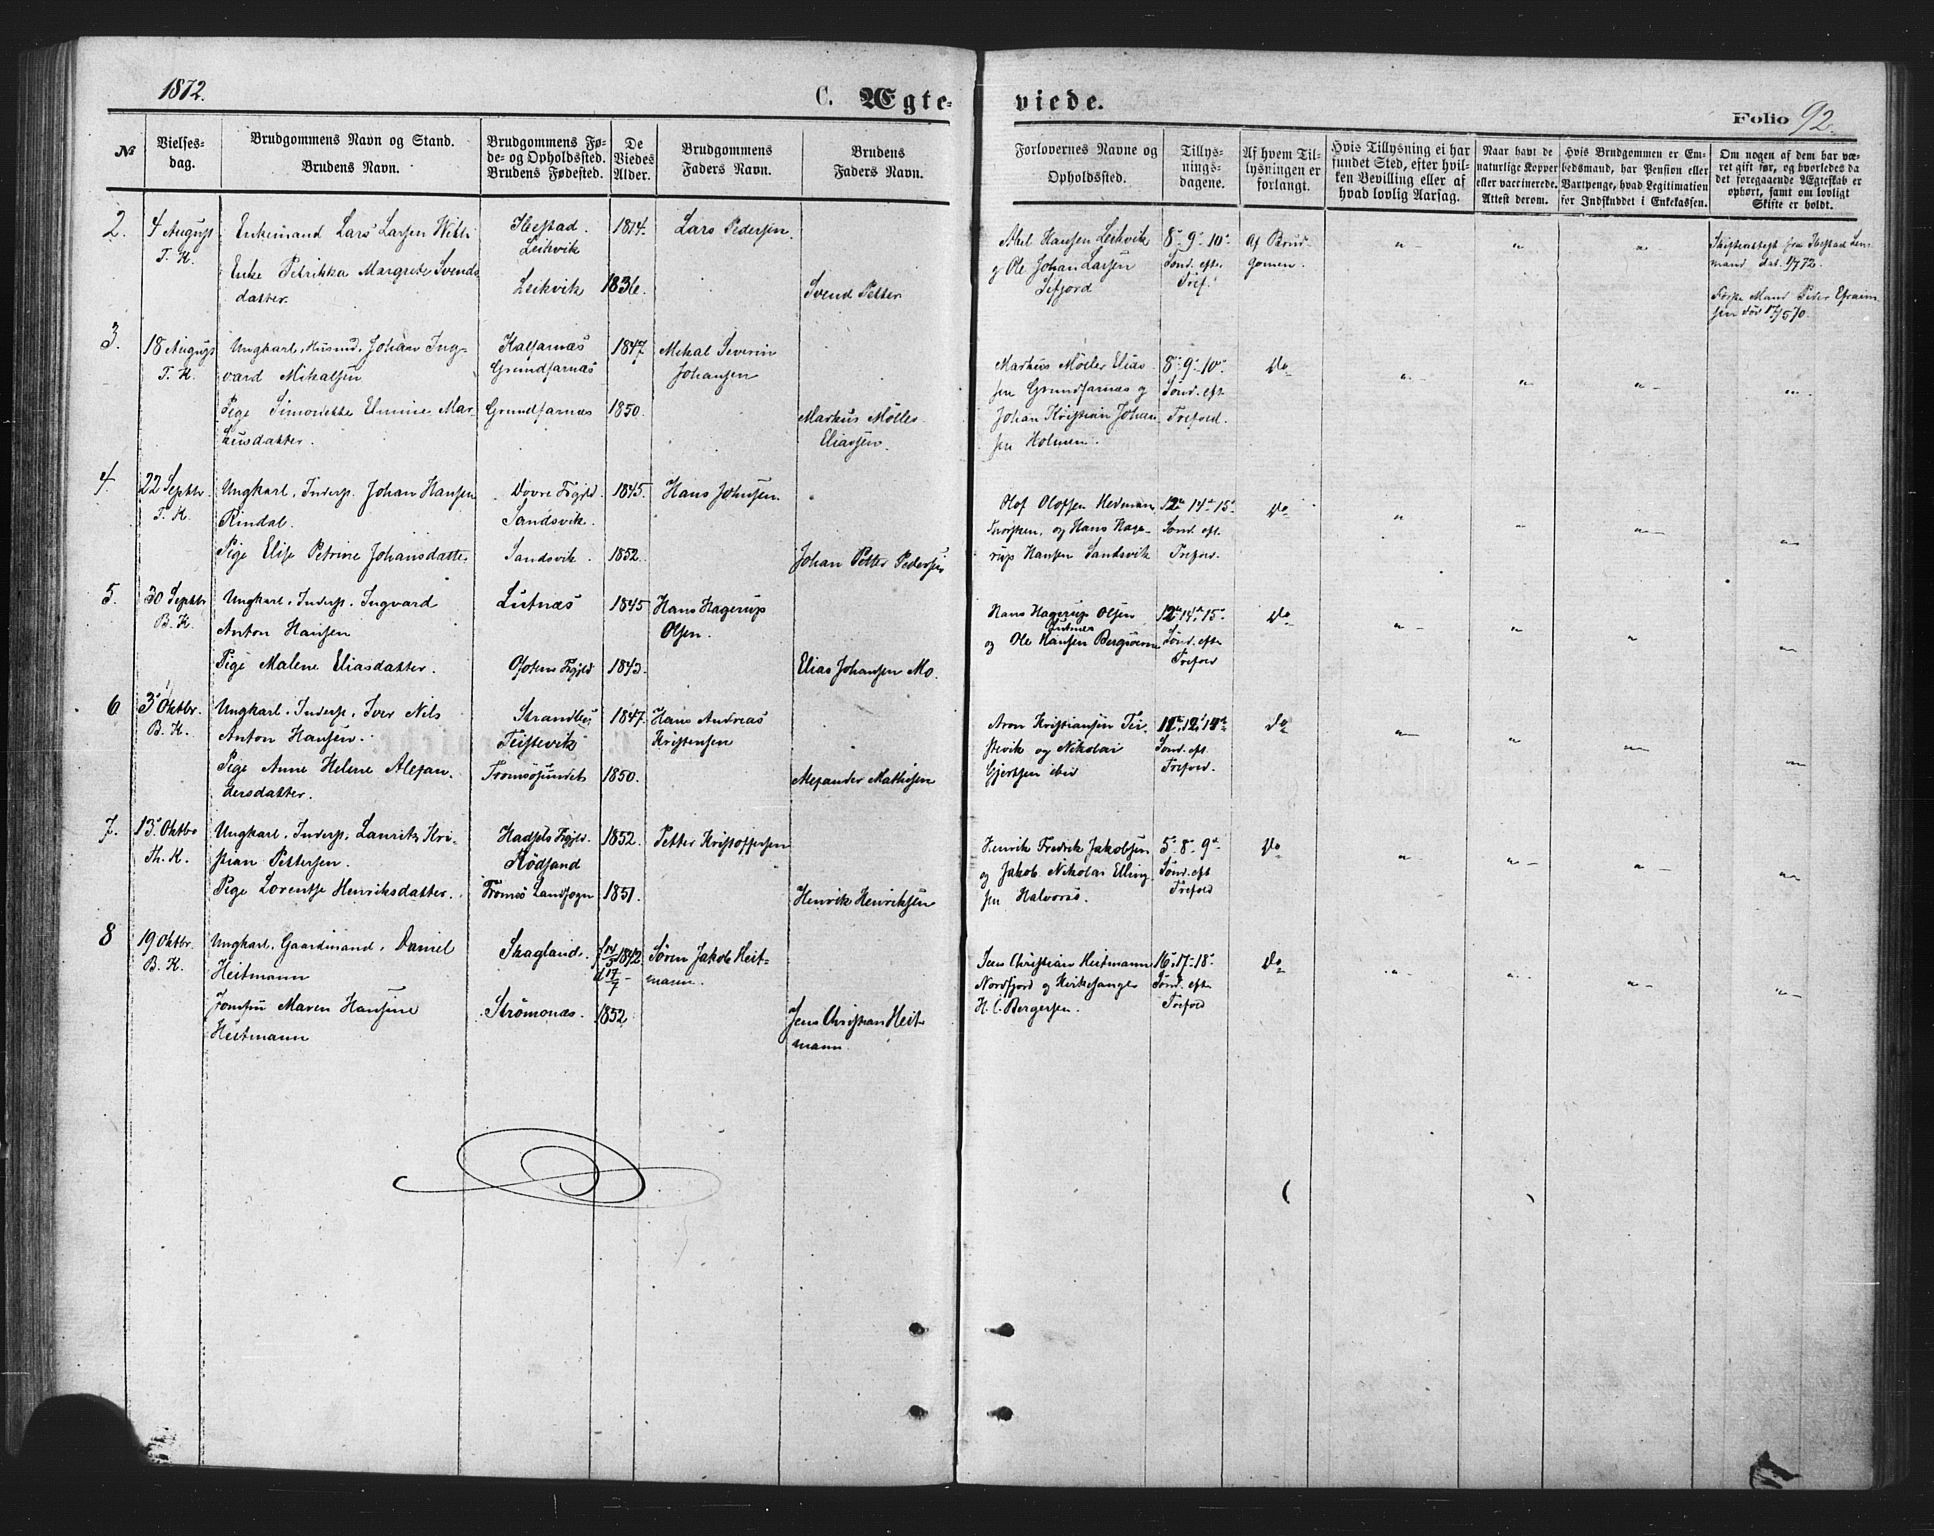 1872.
C. Ægte-
viede.
Folio 92.
№
Vielses-
dag.
Brudgommens Navn og Stand.
Brudens Navn.
Brudgommens Fø-
de- og Opholdssted.
Brudens Fødested.
De
Viedes
Alder.
Brudgommens
Faders Navn.
Brudens
Faders Navn.
Forlovernes Navne og
Opholdssted.
Tillys-
nings-
dagene.
Af hvem Til-
lysningen er
forlangt.
Hvis Tillysning ei har
fundet Sted, efter hvil-
ken Bevilling eller af
hvad lovlig Aarsag.
Naar havt de
naturlige Kopper
eller vaccinerede.
Attest derom.
Hvis Brudgommen er Em-
bedsmand, har Pension eller
Vartpenge, hvad Legitimation
for Indskuddet i Enkekassen.
Om nogen af dem har væ-
ret gift før, og hvorledes da
det foregaaende Ægteskab er
ophørt, samt om lovligt
Skifte er holdt.
2. 4 August
T. K.
Enkemand Lars Larsen
Enke Petrikka Margrete Svends
datter.
Ibestad
Leikvik
Leikvik
1814.
1836.
Lars Pedersen.
Svend Petter
Hansen Leikvik
og Ole Johan Larsen
Sifjord
8de 9de 10de
Sønd. eft.
Tref.
Af Brud
gomen.
Skifteattest fra Ibestad Len
mand dat. 1/7 72.
Første Mand Peder Efraim
sen død 17/5 70.
3. 18 August
T. K.
Ungkarl, Husmd, Johan Ing-
vard Mikalsen
Pige Simonette Elmine Mar-
kusdatter.
Kalfarnæs
Grundfarnæs
Grundfarnæs
1847.
1850.
Mikal Severin
Johansen
Markus Møller
Eliassen.
Markus Møller Elias
sen Grundfarnæs og
Johan Kristian Johan
sen Holmen.
8de 9de 10de
Sønd. eft
Trefold.
Do
4. 22 Septbr.
T. K.
Ungkarl, Inderst, Johan Hansen
Rindal.
Pige Elise Petrine Johansdatter
Dovre Prgjld.
Sandsvik.
Sandsvik.
1845.
1852.
Hans Johnsen.
Johan Petter Pedersen
Olof Olofsen Hedman
og Hans Hage-
rup Hansen Sandsvik
12te 14de 15de
Sønd. eft.
Trefold.
Do
5. 30 Septbr
B. K.
Ungkarl, Inderst, Ingvard
Anton Hansen
Pige Malene Eliasdatter.
Lutnæs
Ofotens Prgjld
1845
1843.
Hans Hagerup
Olsen.
Elias Johansen Mo.
Hans Hagerup Olsen
Lutnæs
og Ole Hansen
12te 14de 15de
Sønd. eft
Trefold
Do
6 3de Oktbr.
B. K.
Ungkarl, Inderst, Iver Nils
Anton Hansen.
Pige Anne Helene Alexan
dersdatter.
Strandby
Teistevik
Tromsøsundet
1847.
1850.
Hans Andreas
Kristensen
Alexander Mathisen
Aron Kristiansen Tei-
stevik og Nikolai
Gjertsen ibid
11te 12te 14de
Sønd. eft.
Trefold.
Do
7. 13de Oktbr
Th. K.
Ungkarl, Inderst, Lauritz Kri-
stian Pettersen.
Pige Lorentse Henriksdatter.
Hadsels Prgjld.
Rødsand
Tromsø Landsogn
1852.
1851.
Petter Kristoffersen
Henrik Henriksen
Henrik Fredrik Jakobsen
og Jakob Nikolai Elling
sen Halvorsø.
5de 8de 9de
Sønd. eft
Trefold
Do
8 19 Oktbr.
B. K.
Ungkarl, Gaardmand, Daniel
Heitmann
Jomfru Maren Hansine
Heitmann
Skagland.
Strømonæs.
f 14/5 1842
d 17/7
1852
Søren Jakob Heit-
mann.
Jens Christian Heit
mann.
Jens Christian Heitmann
Nordfjord og Kirkesanger
H. C. Bergersen.
16de 17de 18de
Sønd. eft
Trefold
Do